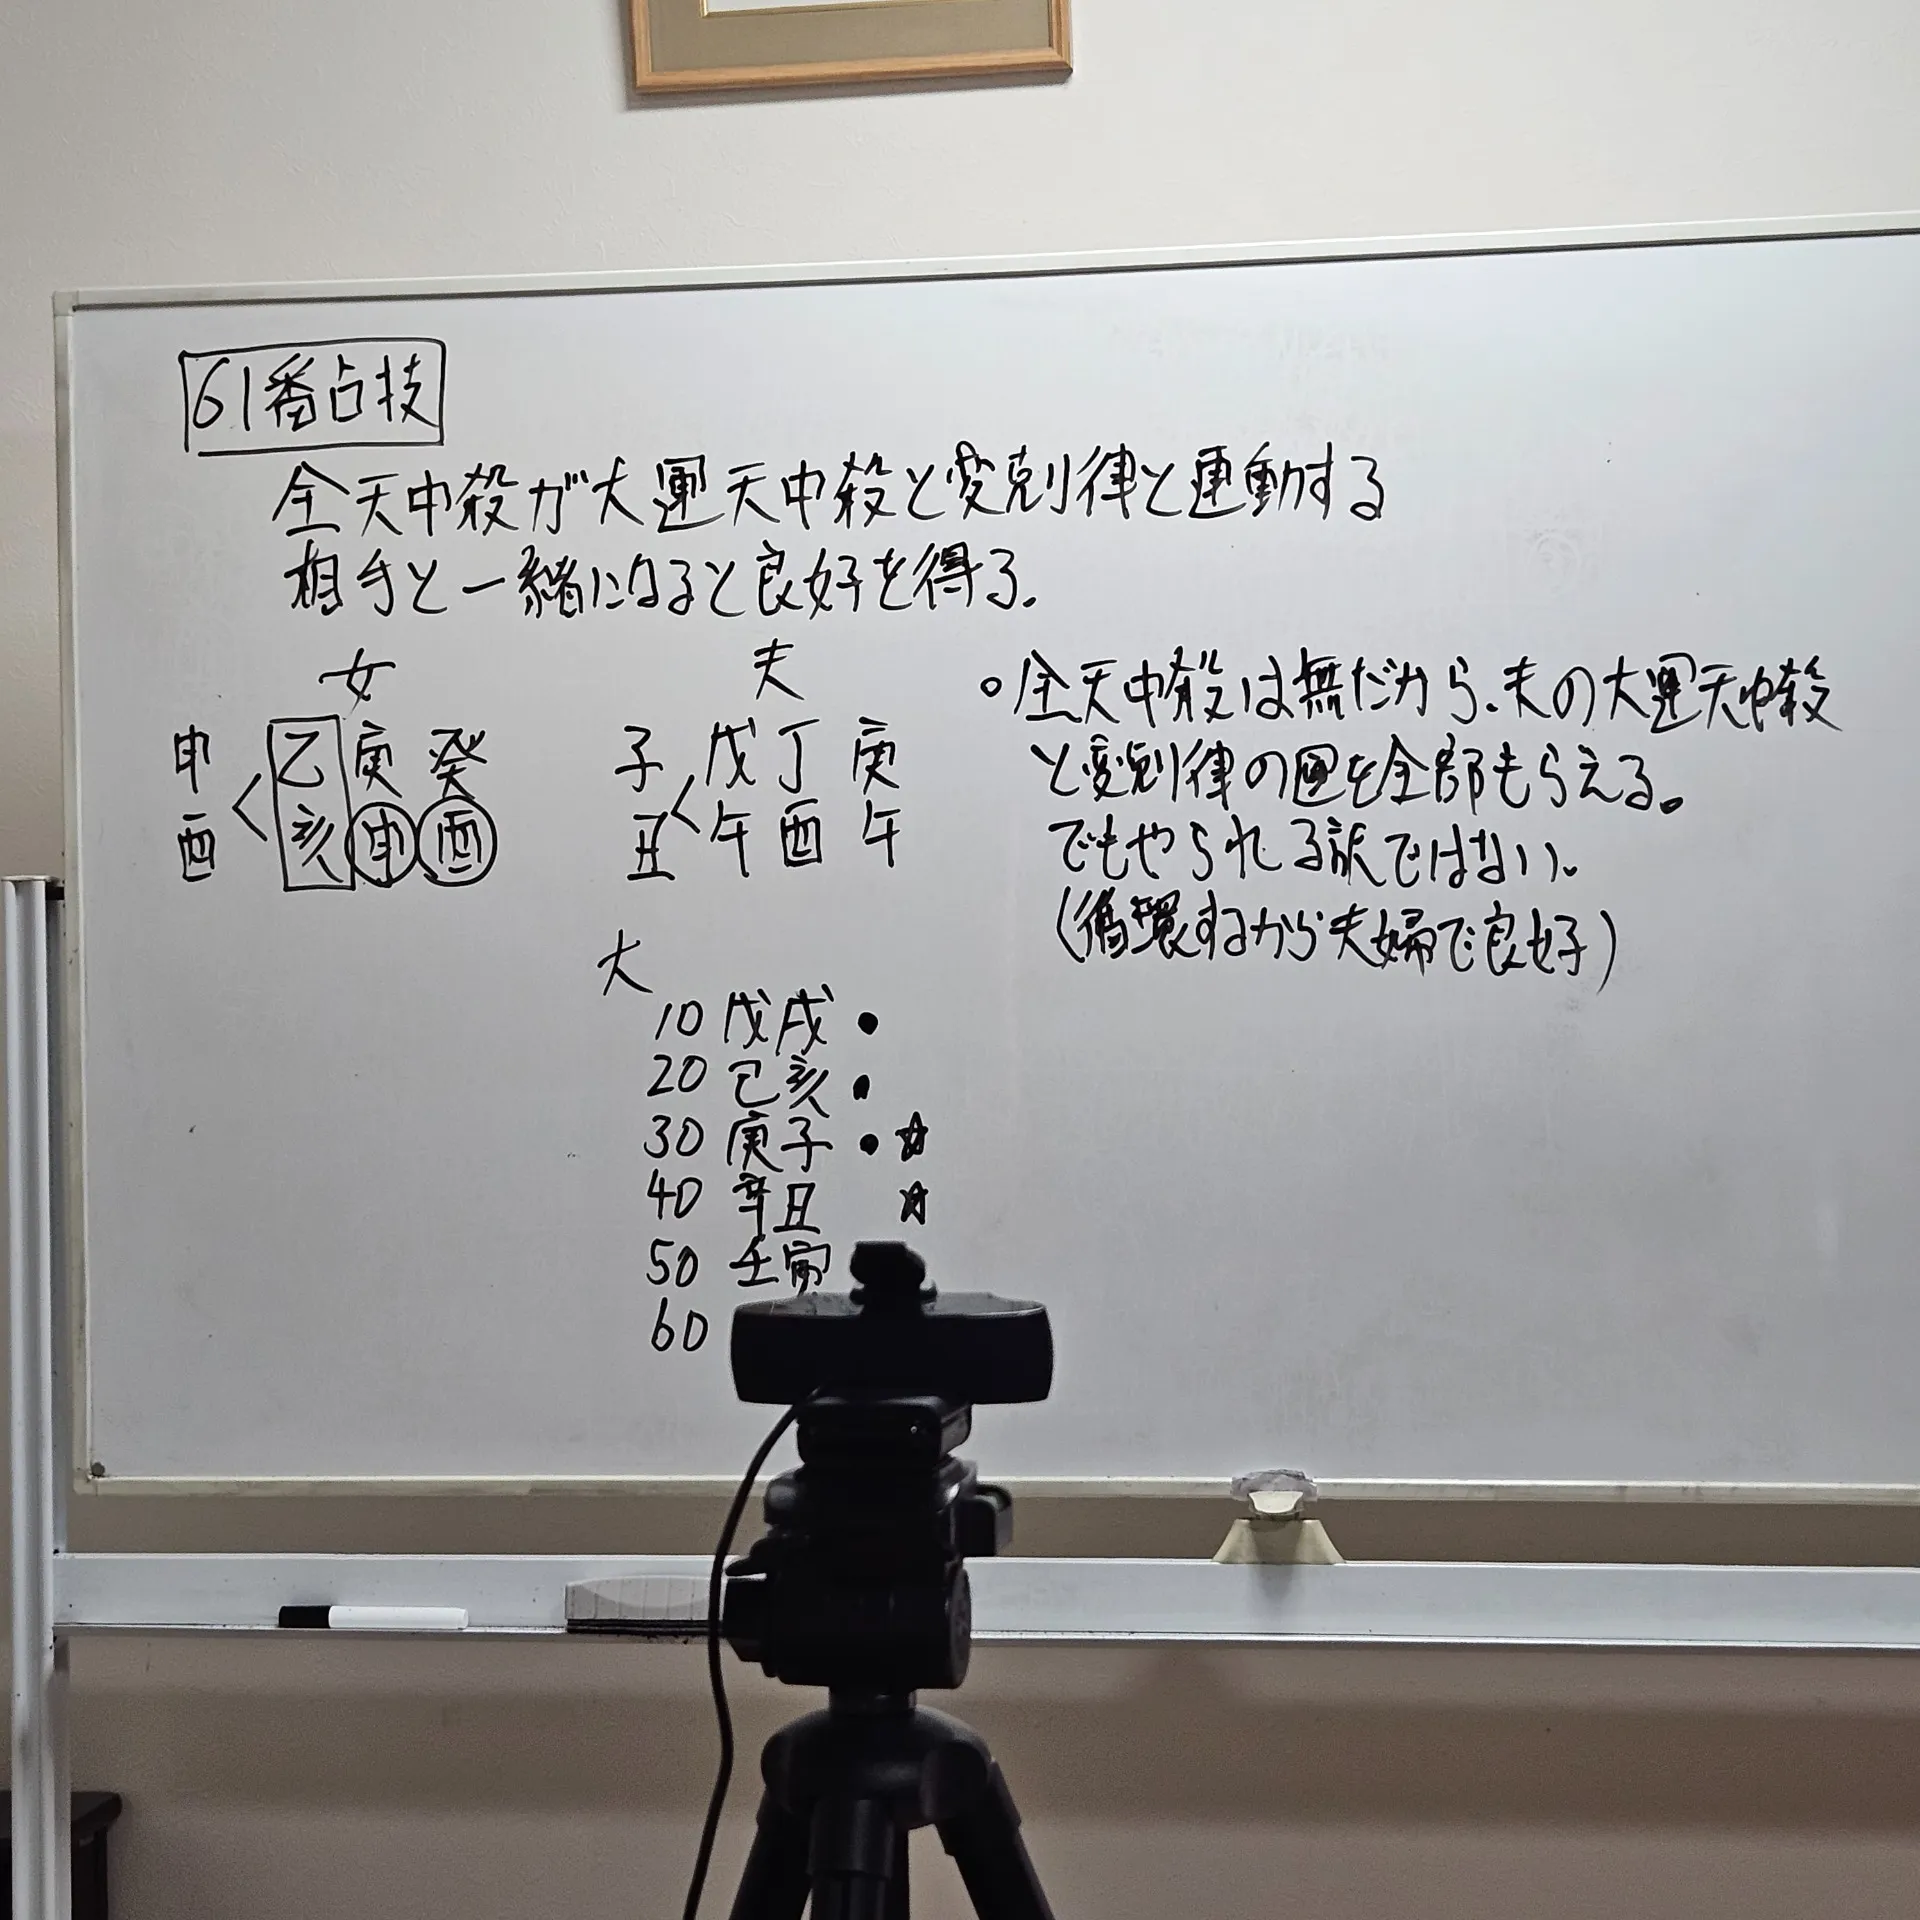 61番占技
全天中殺が大運天中殺と変剋律と連動する
相手と一緒になると良好を得る。
女
申 乙庚癸
酉 亥申酉
夫
子 戊丁庚
丑 午酉午
大
10 戊戌 ●
20 己亥 ●
30 庚子 ● ☆
40 辛丑 ☆
50 壬寅
60
○全天中殺は無だから、夫の大運天中殺
と変剋律の運を全部もらえる。
でもやられる訳ではない。
(循環するから夫婦で良好)